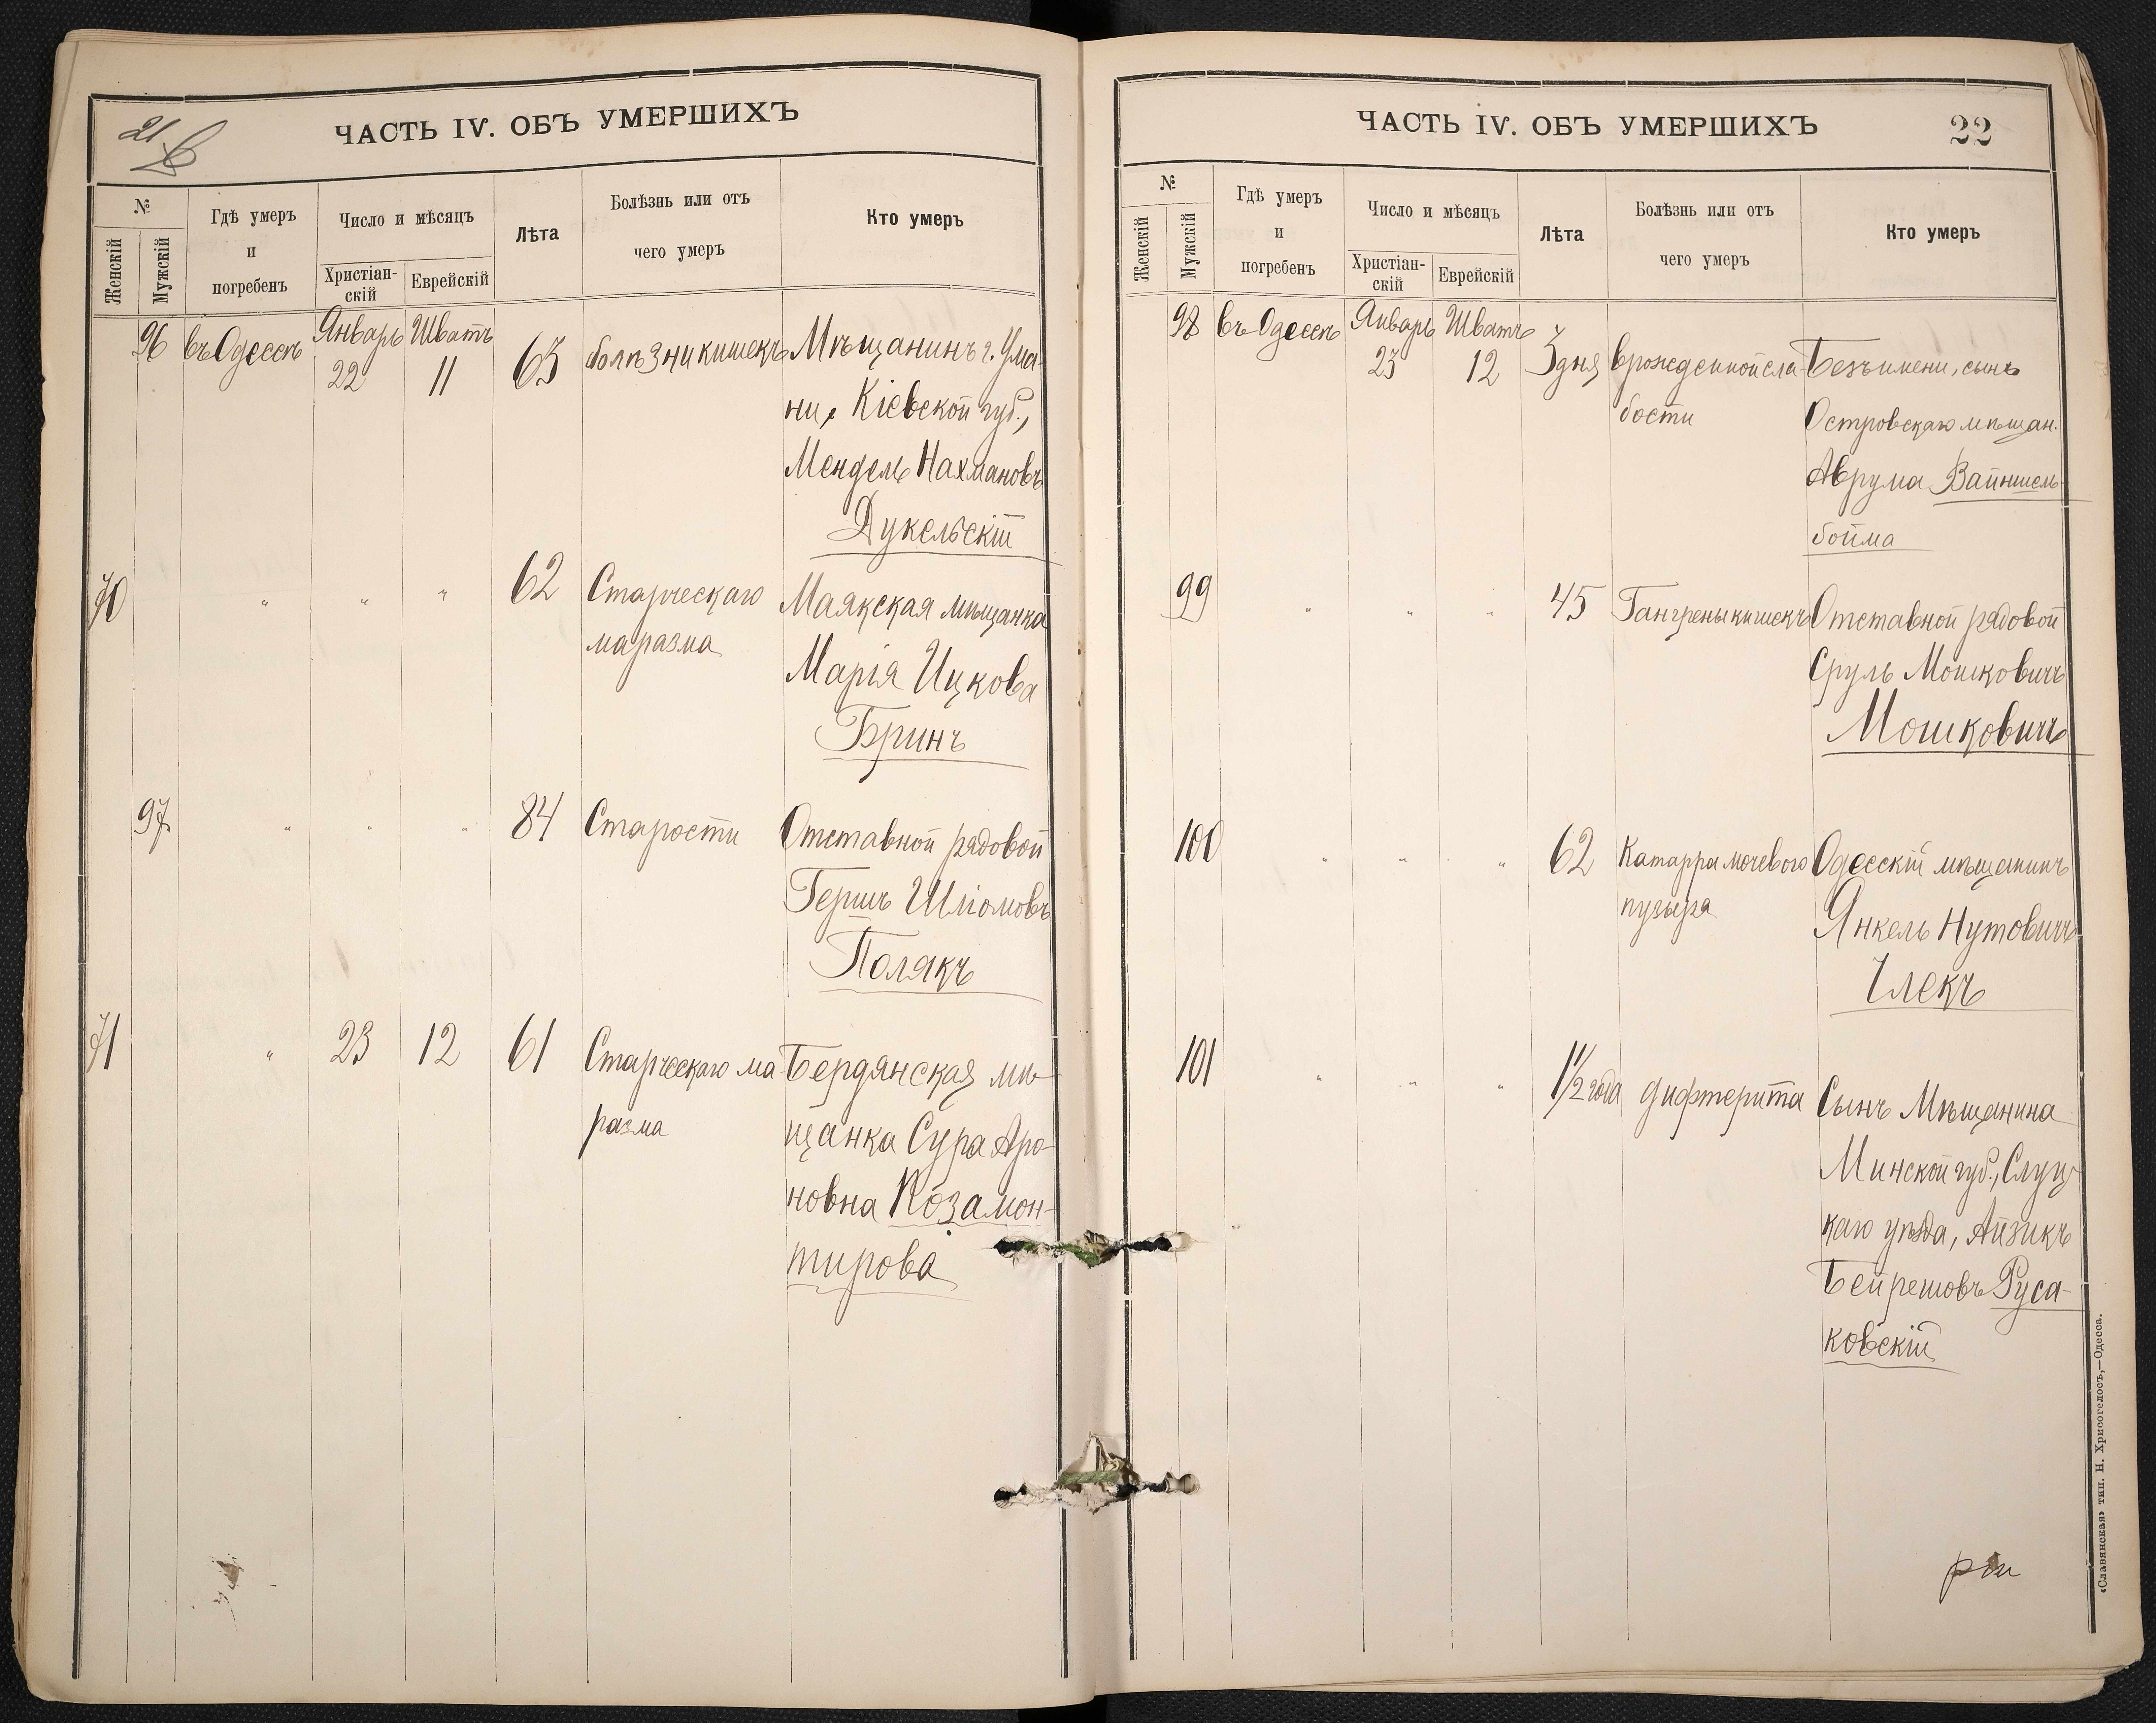 21
ЧАСТЬ IV. ОБЪ УМЕРШИХЪ
№
Женскій
Мужскій
Гдѣ умеръ
и
погребенъ
Число и мѣсяцъ
Христіан-
скій
Еврейскій
Лѣта
Болѣзнь или отъ
чего умеръ
Кто умеръ
96 въ Одессѣ Январь Шватъ
22 11 63 болѣзни кишекъ Мѣщанинъ г. Ума-
ни, Кіевской губ.,
Мендель Нахмановъ
Дукельскій
70 " " " 62 Старческаго Маякская мѣщанка
маразма Марія Ицкова
Бринъ
97 " " " 84 Старости Отставной рядовой
Гершъ Шліомовъ
Полякъ
71 " 23 12 61 Старческаго ма- Бердянская мѣ-
разма щанка Сура Аро-
новна Розамон-
тирова
ЧАСТЬ IV. ОБЪ УМЕРШИХЪ
22
№
Женскій
Мужскій
Гдѣ умеръ
и
погребенъ
Число и мѣсяцъ
Христіан-
скій
Еврейскій
Лѣта
Болѣзнь или отъ
чего умеръ
Кто умеръ
98 въ Одессѣ Январь Шватъ
23 12 3 дня врожденной сла- Безъ имени, сынъ
бости Островскаго мѣщан.
Аврума Вайншель-
бойма
99 " " " 45 Гангрены кишекъ Отставной рядовой
Сруль Мошковичъ
Мошковичъ
100 " " " 62 Катарра мочевого Одесскій мѣщанинъ
пузыря Янкель Нутовичъ
Члекъ
101 " " " 1 1/2 года дифтерита Сынъ Мѣщанина
Минской губ., Слуц-
каго уѣзда, Айзикъ
Бейрешовъ Руса-
ковскій
«Славянская» тип. Н. Хрисогелосъ,—Одесса.